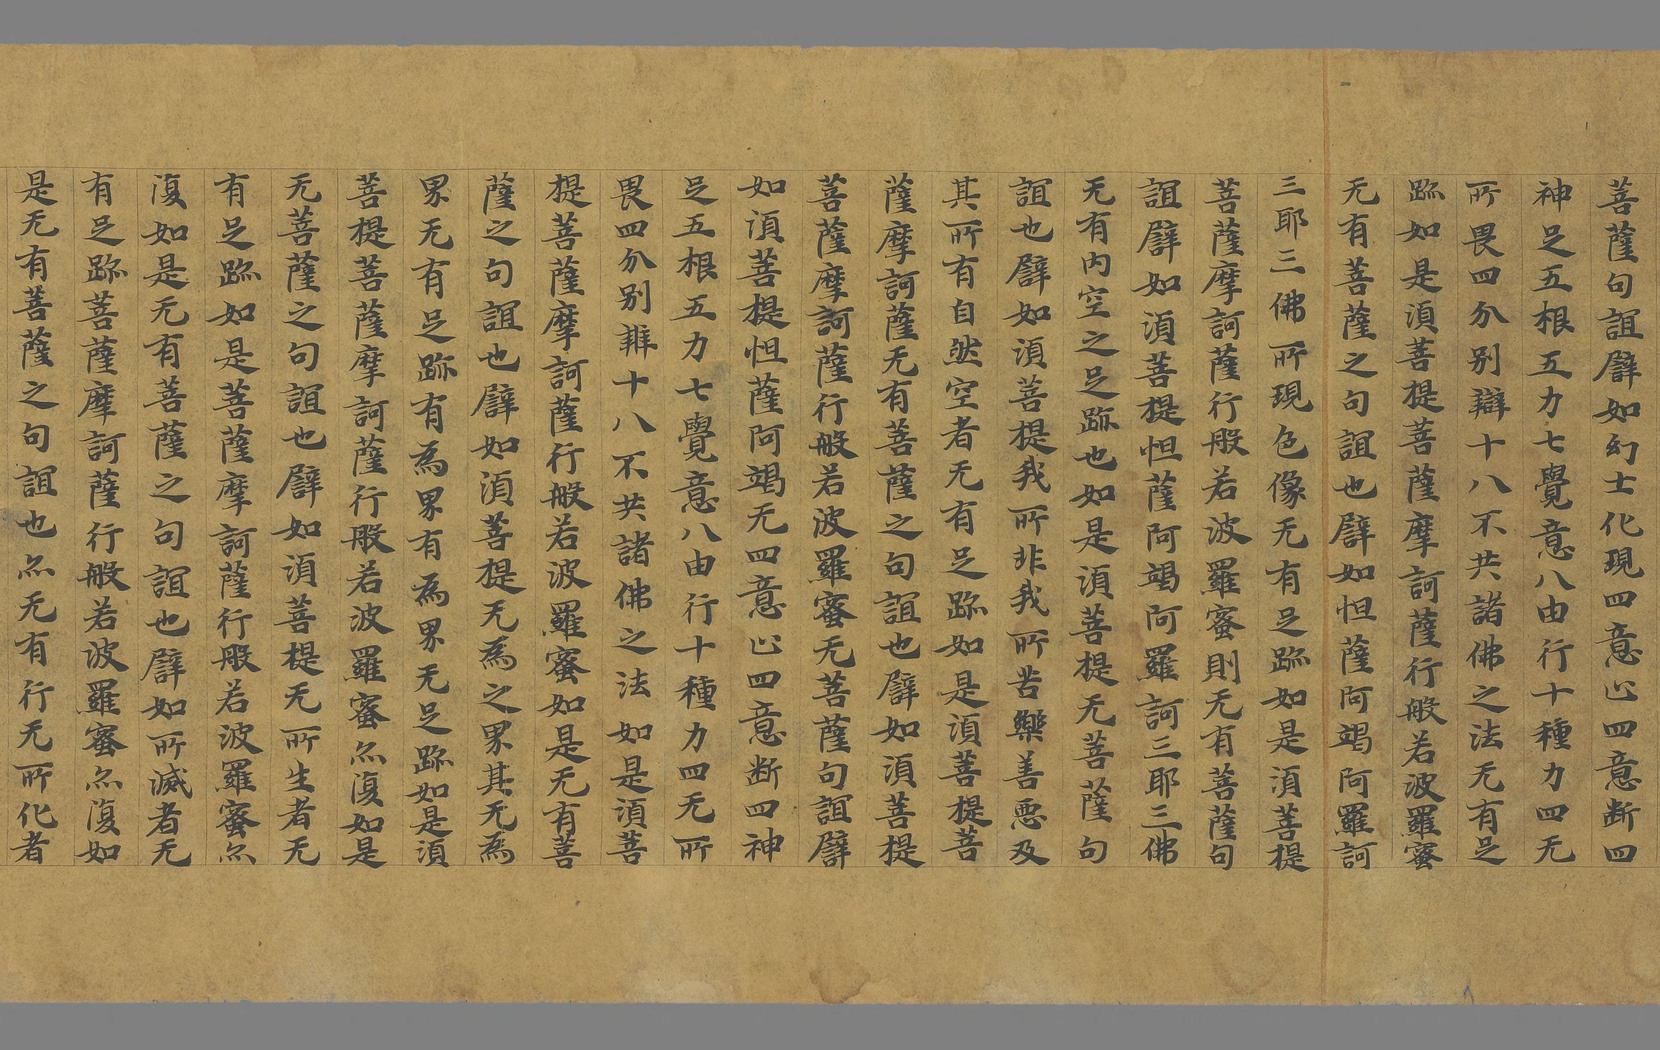 菩薩句誼譬如幻士化現四意止四意断四
神足五根五力七覺意八由行十種力四无
所畏四分别辯十八不共諸佛之法无有足
跡如是湏菩提菩薩摩訶薩行般若波羅蜜
无有菩薩之句誼也譬如怛薩阿竭阿羅訶
三耶三佛所現色像无有足跡如是湏菩提
菩薩摩訶薩行般若波羅蜜則无有菩薩句
誼譬如湏菩提怛薩阿竭阿羅訶三耶三佛
无有内空之足跡也如是湏菩提无菩薩句
誼也譬如湏菩提我所非我所苦樂善悪及
其所有自然空者无有足跡如是湏菩提菩
薩摩訶薩无有菩薩之句誼也譬如湏菩提
菩薩摩訶薩行般若波羅蜜无菩薩句誼譬
如湏菩提怛薩阿竭无四意止四意断四神
足五根五力七覺意八由行十種力四无所
畏四分别辯十八不共諸佛之法如是湏菩
提菩薩摩訶薩行般若波羅蜜如是无有菩
薩之句誼也譬如湏菩提无為之界其无為
界无有足跡有為界有為界无足跡如是湏
菩提菩薩摩訶薩行般若波羅蜜亦復如是
无菩薩之句誼也譬如湏菩提无所生者无
有足跡如是菩薩摩訶薩行般若波羅蜜亦
復如是无有菩薩之句誼也譬如所滅者无
有足跡菩薩摩訶薩行般若波羅蜜亦復如
是无有菩薩之句誼也亦无有行无所化者